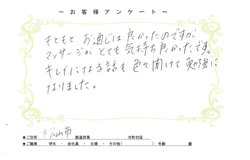 ～お客様アンケート～
もともと お通じは 良かったのですが
マッサージが とても 気持ち良かったです。
キレイになる話も 色々聞けて 勉強に
なりました。
●ご住所
都道府県
市町村
●ご職業
学生・会社員・主婦・その他(
)
年齢
歳